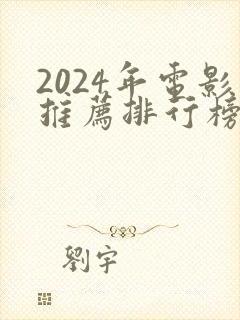 2024年电影
推薦排行榜
劉宇